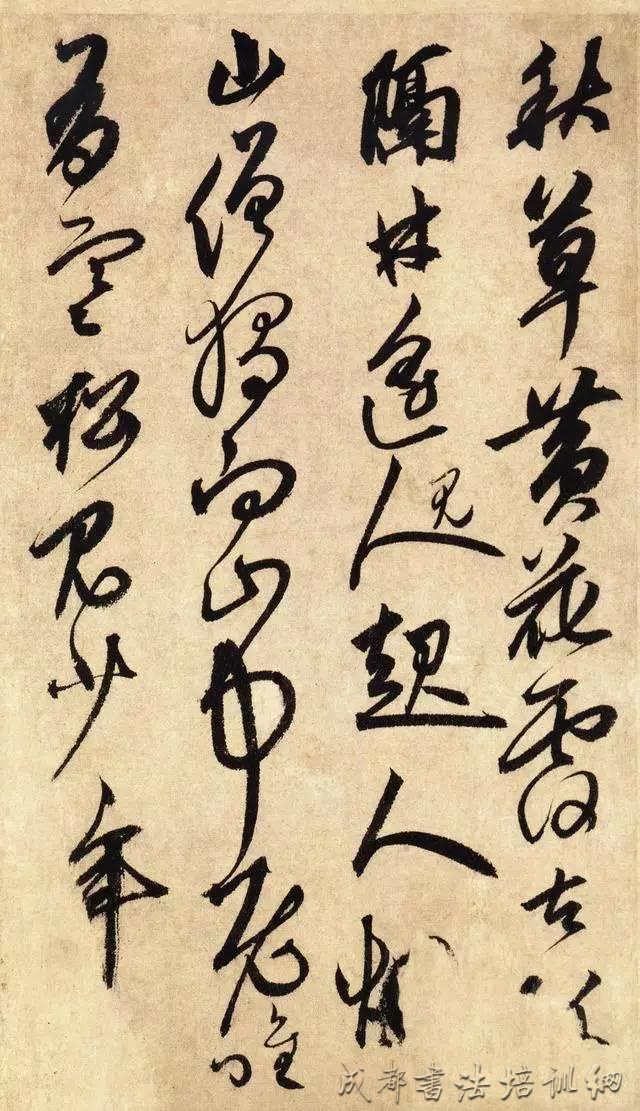 秋草黄花覆古阡
隔林遥人見起人烟
山僧獨向山中老唯
有寒松見少年
成都書法培训網